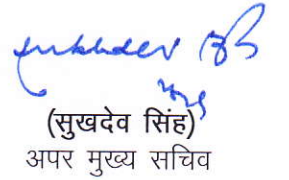 (सुखदेव सिंह)
अपर मुख्य सचिव